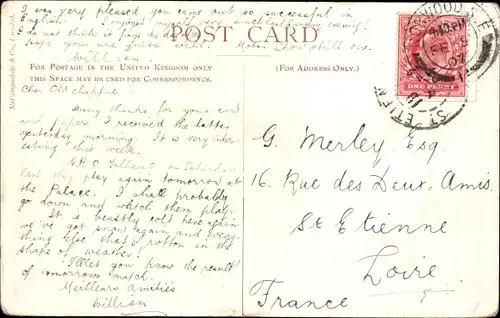 I was very pleased you came out so successful in
English. I enjoyed myself very much
I do not think is
hope you are quite well.
William
POST CARD
FOR POSTAGE IN THE UNITED KINGDOM ONLY
THIS SPACE MAY BE USED FOR CORRESPONDENCE.
(FOR ADDRESS ONLY.)
McCorquodale & Co., Limited.
Cher Old chappie.
Many thanks for your card
and paper. I received the latter
yesterday morning. It is very inter-
esting this week.
C.P. O on Saturday
last they play again tomorrow at
the Palace. I shall probably
go down and watch them play.
It is beastly cold here again
we've got snow again and every
thing else that's rotten in the
shape of weather.
I'll let you know the result
of tomorrows match.
Meilleurs Amitiés
William
ONE PENNY
G. Merley Esq.
16. Rue des Deux. Amis.
St Etienne
Loire.
France